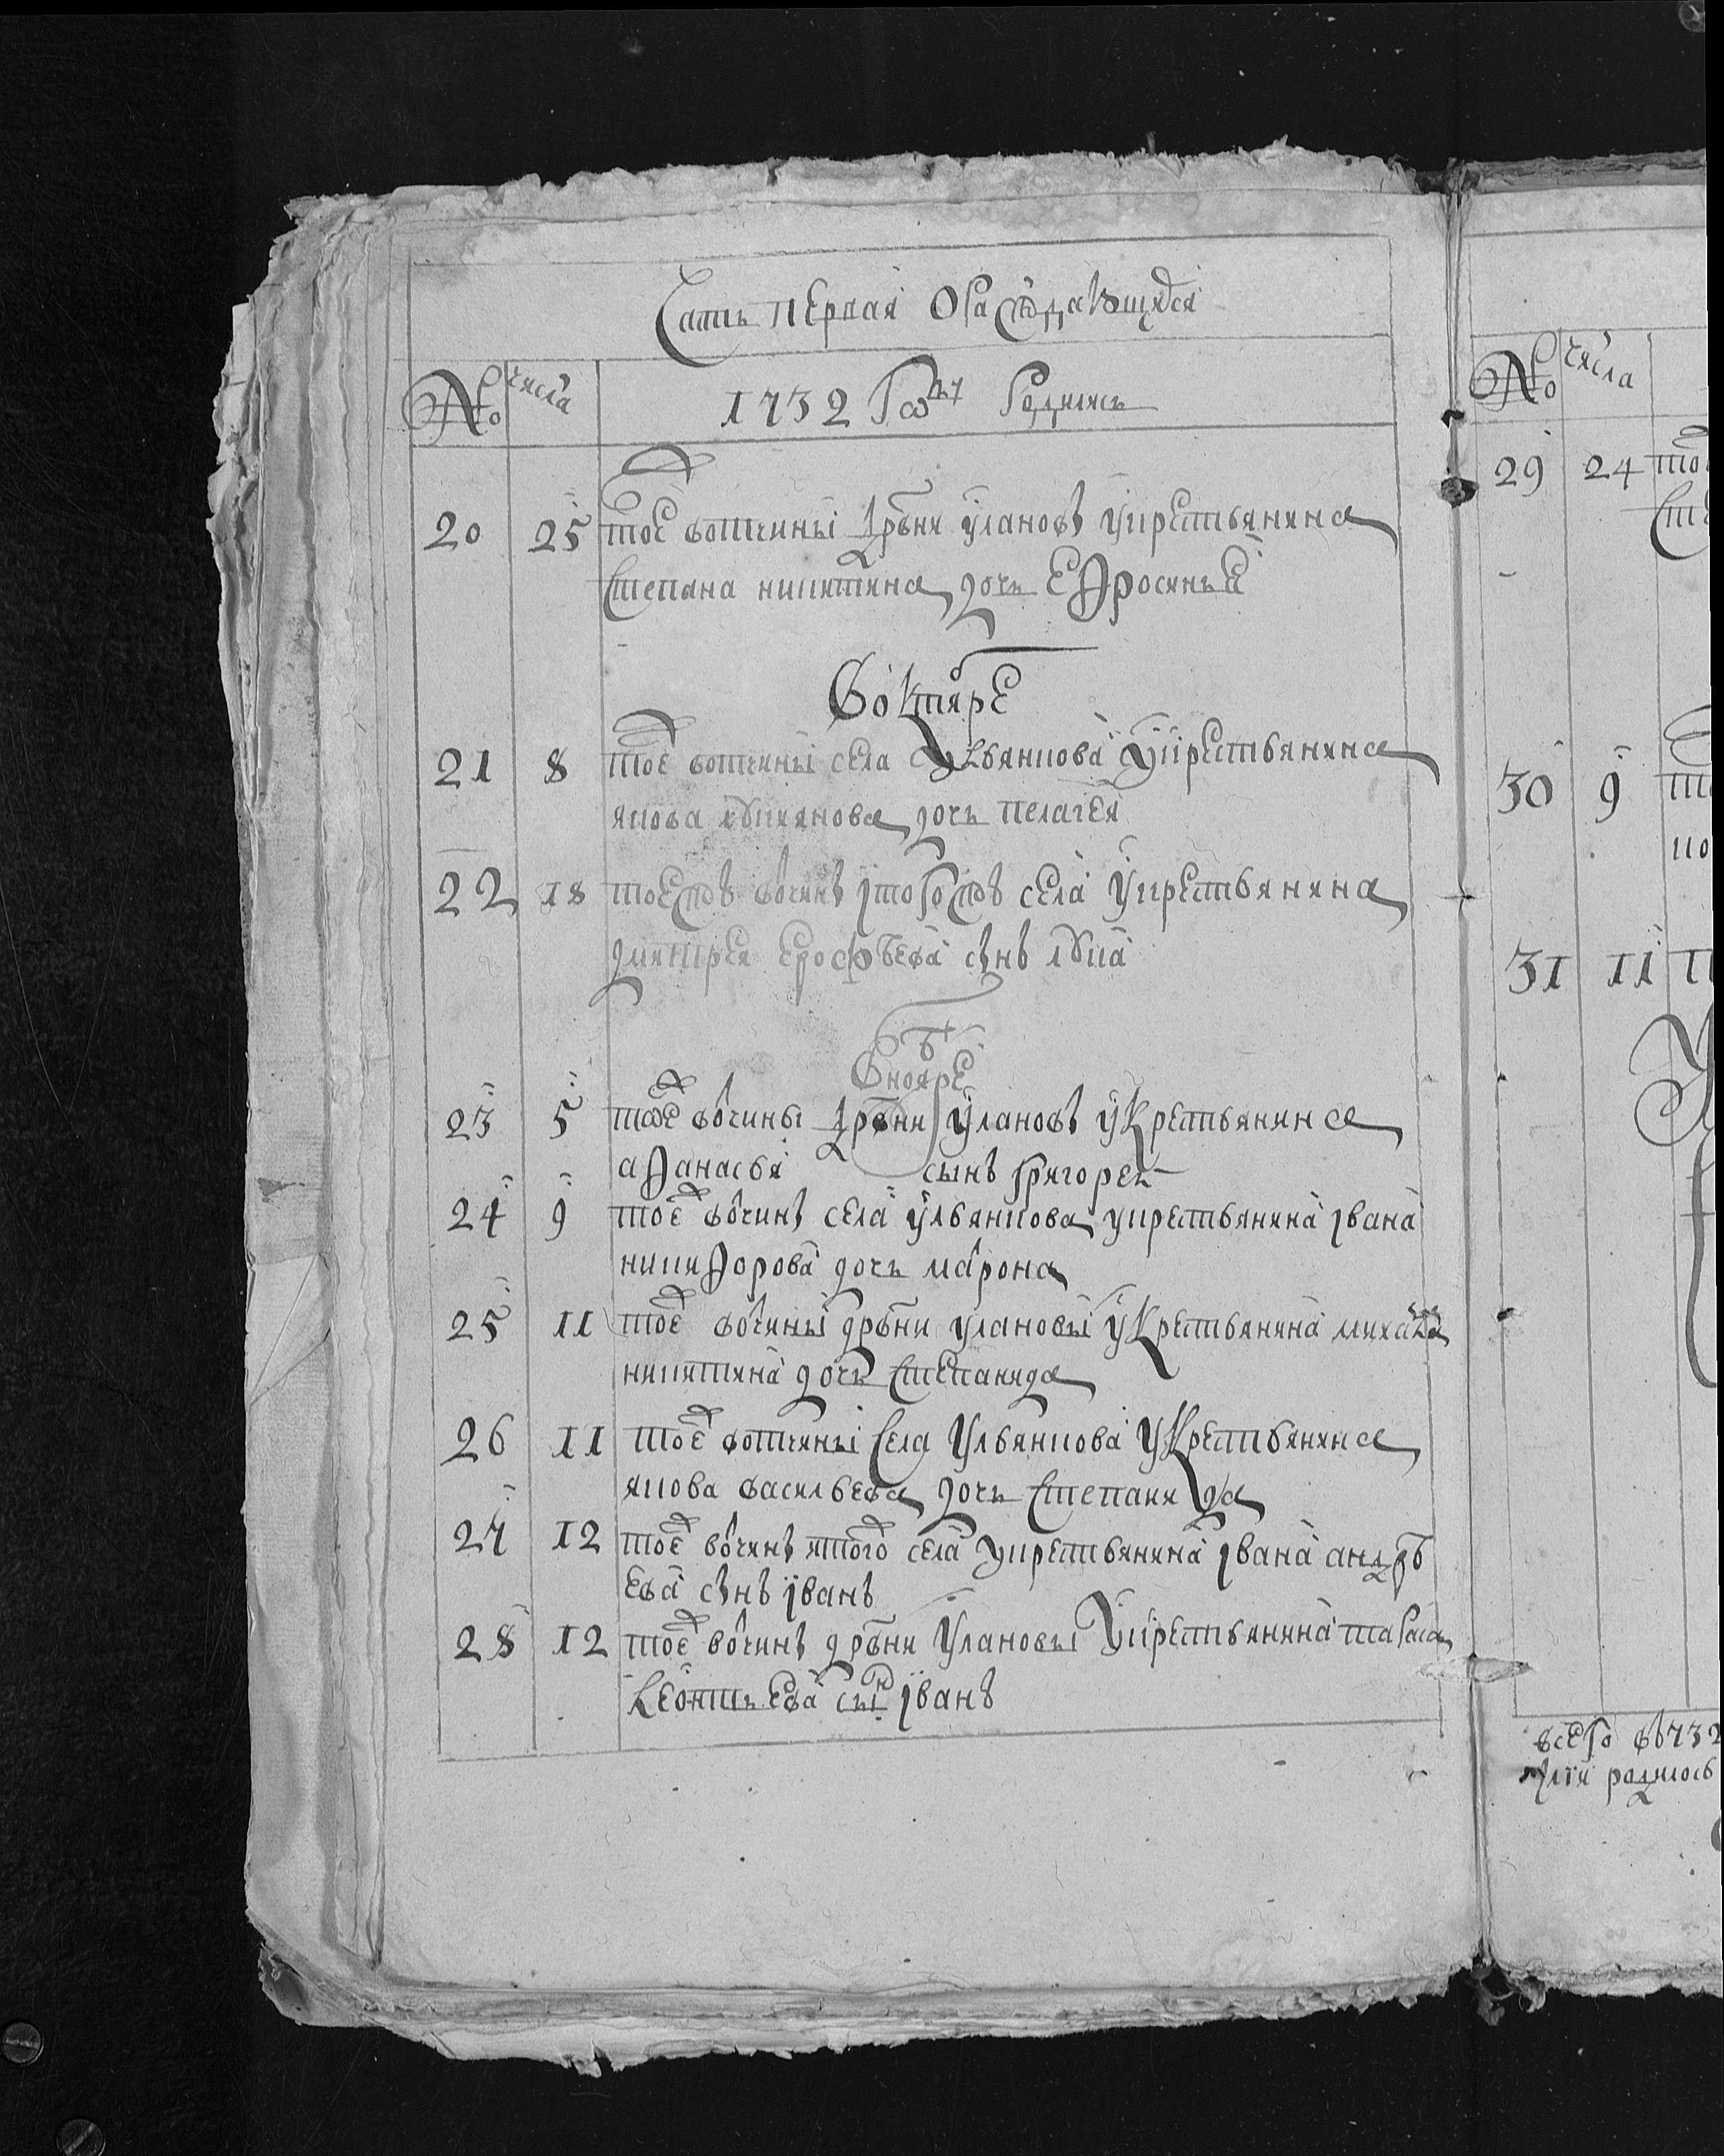 Часть первая о раждающихся
№ числа 1732 году родились
20 25 тое вотчины дрвни уланов у крестьянина
степана никитина дочь ефросинья
в октяре
21 8 тое вотчины села ульянкова у крестьянина
якова лукиянова дочь пелагея
22 18 тоежъ вочинъ і тогожъ села у крестьянина
дмитрея ерофѣева снъ лука
в ноябрѣ
23 5 тое вочины дрвни улановъ у крестьянина
афанасья сынъ григореи
24 9 тое вочинъ села ульянкова у крестьянина івана
никифорова дочь марона
25 11 тое вочины дрвни улановы у крестьянина михаила
никитина дочь степанида
26 11 тое вотчины села ульянкова у крестьянина
якова васильева дочь степанида
27 12 тое вочинъ итого села у крестьянина івана андрѣ
ева снъ іванъ
28 12 тое вочинъ дрвни улановы у крестьянина тараса
леонтьева сынъ іванъ
№ числа
29 24 тое
сте
30 9
31 11
всего въ 732
родилось